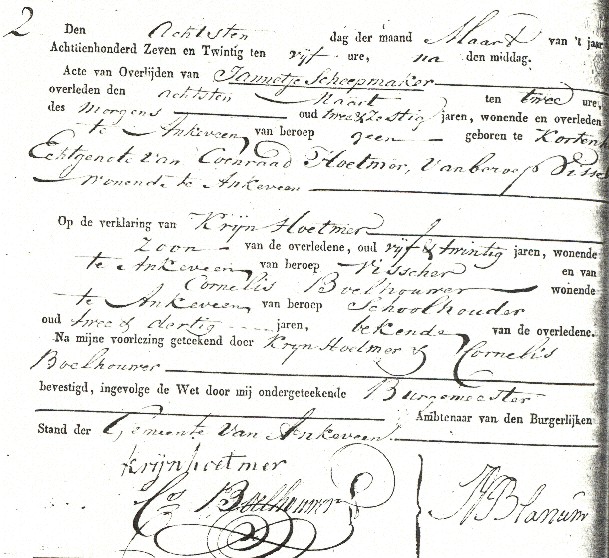 2
Den achtsten dag der maand Maart van 't jaar
Achttienhonderd Zeven en Twintig ten vijf ure, na den middag.
Acte van Overlijden van Jannetje Scheepmaker
overleden den achtsten Maart ten twee ure,
des morgens oud twee & zestig jaren, wonende en overleden
te Ankeveen van beroep geen geboren te Kortenh
Echtgenote van Coenraad Hoetmer, van beroep Visse
wonende te Ankeveen
Op de verklaring van Krijn Hoetmer
Zoon van de overledene, oud vijf & twintig jaren, wonende
te Ankeveen van beroep visscher en van
Cornelis Boelhouwer wonende
te Ankeveen van beroep Schoolhouder
oud twee & dertig jaren, bekende van de overledene.
Na mijne voorlezing geteekend door Krijn Hoetmer & Cornelis
Boelhouwer
bevestigd, ingevolge de Wet door mij ondergeteekende Burgemeester
Ambtenaar van den Burgerlijken
Stand der Gemeente van Ankeveen.
krijn hoetmer
Cs Boelhouwer